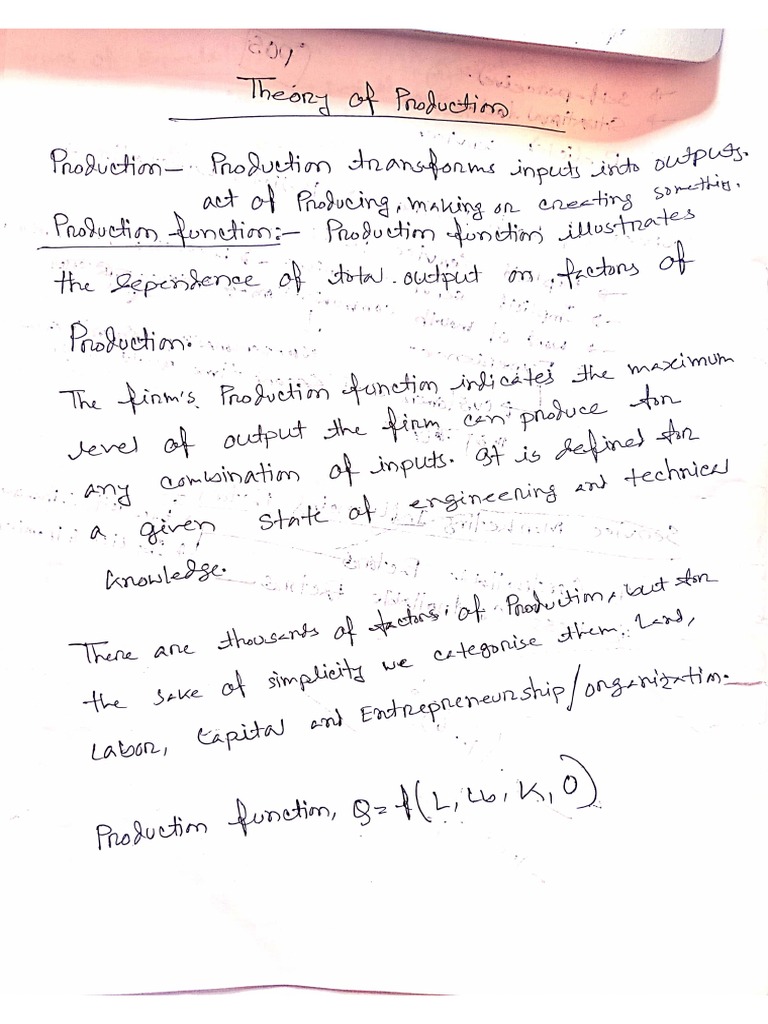 Theory of Production
Production- Production transforms inputs into outputs.
act of Producing, making or creating something.
Production function:- Production function illustrates
the dependence of total output on factors of
Production.
The firm's Production function indicates the maximum
level of output the firm can produce for
any combination of inputs. It is defined for
a given state of engineering and technical
knowledge.
There are thousands of factors of Production, but for
the sake of simplicity we categorise them Land,
Labor, Capital and Entrepreneurship/organization.
Production function, Q = f(L, Lb, K, O)